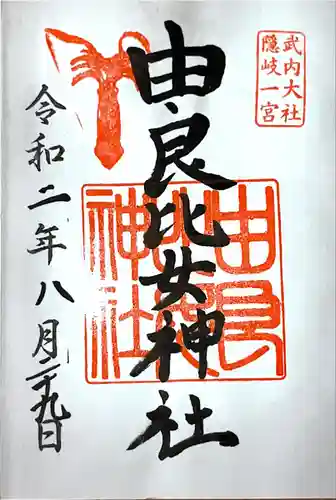 武内大社
隠岐一宮
由良比女神社
由良比女神社
令和二年八月二十九日